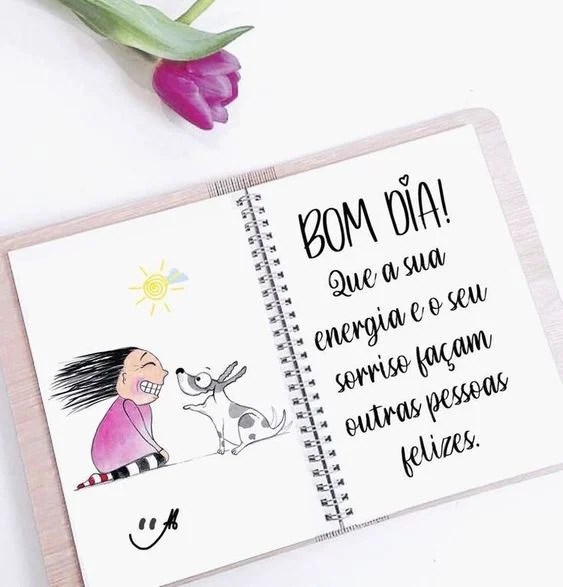 BOM DIA!
Que a sua
energia e o seu
sorriso façam
outras pessoas
felizes.